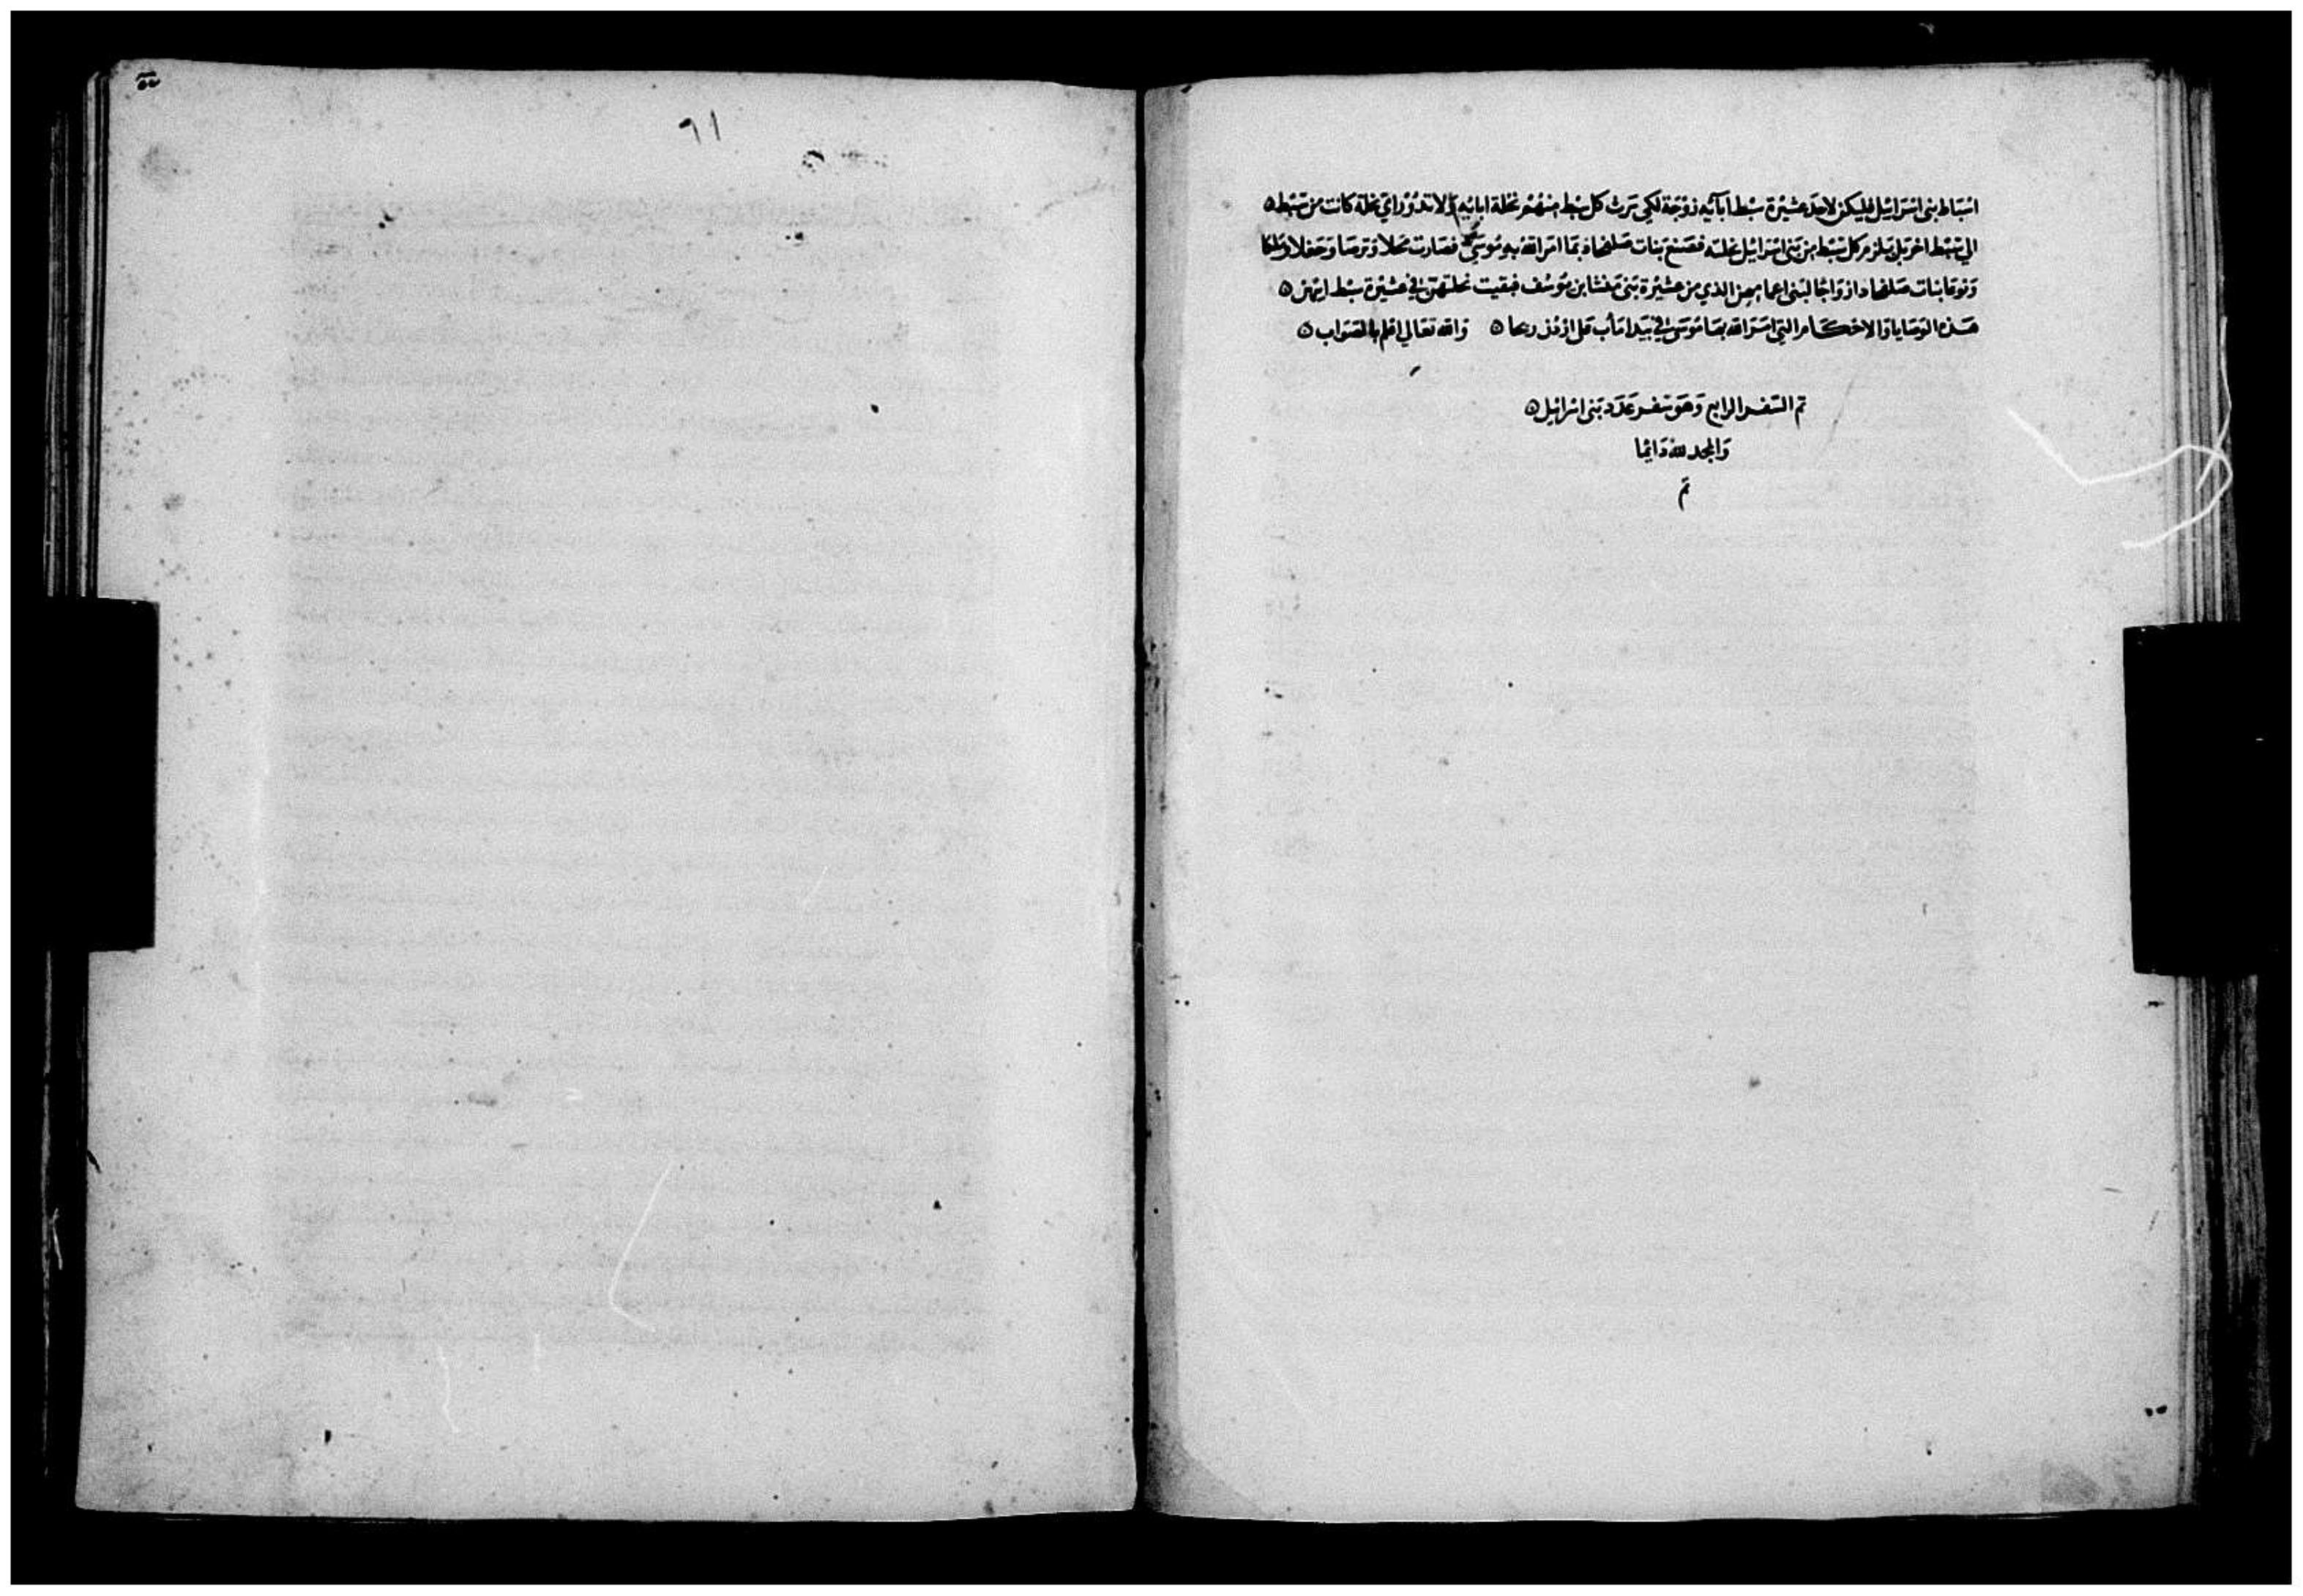 اسباط بنى اسرائيل فليكن لاحد عشيرة سبط آبآئيه زوجة لكى ترث كل سبط منهم نحلة ابائيه ولا تدور اي نحلة كانت من سبط
الي سبط اخر بل يلزم كل سبط من بنى اسرائيل نحلته فصنع بنات صلفحاد بما امر الله به موسى فصارت محلا وترصا وحجلا وملكا
ونوعا بنات صلفحاد ازواجا لبنى اعمامهن الذي من عشيرة بنى منشا ابن يوسف فبقيت نحلتهن في عشيرة سبط ابيهن
هذه الوصايا والاحكام التي امر الله بها موسى في بيدا مأب على اردن ريحا والله تعالي اعلم بالصواب
تم السفر الرابع وهو سفر عدد بنى اسرائيل
والمجد لله دائما
تم
٦١